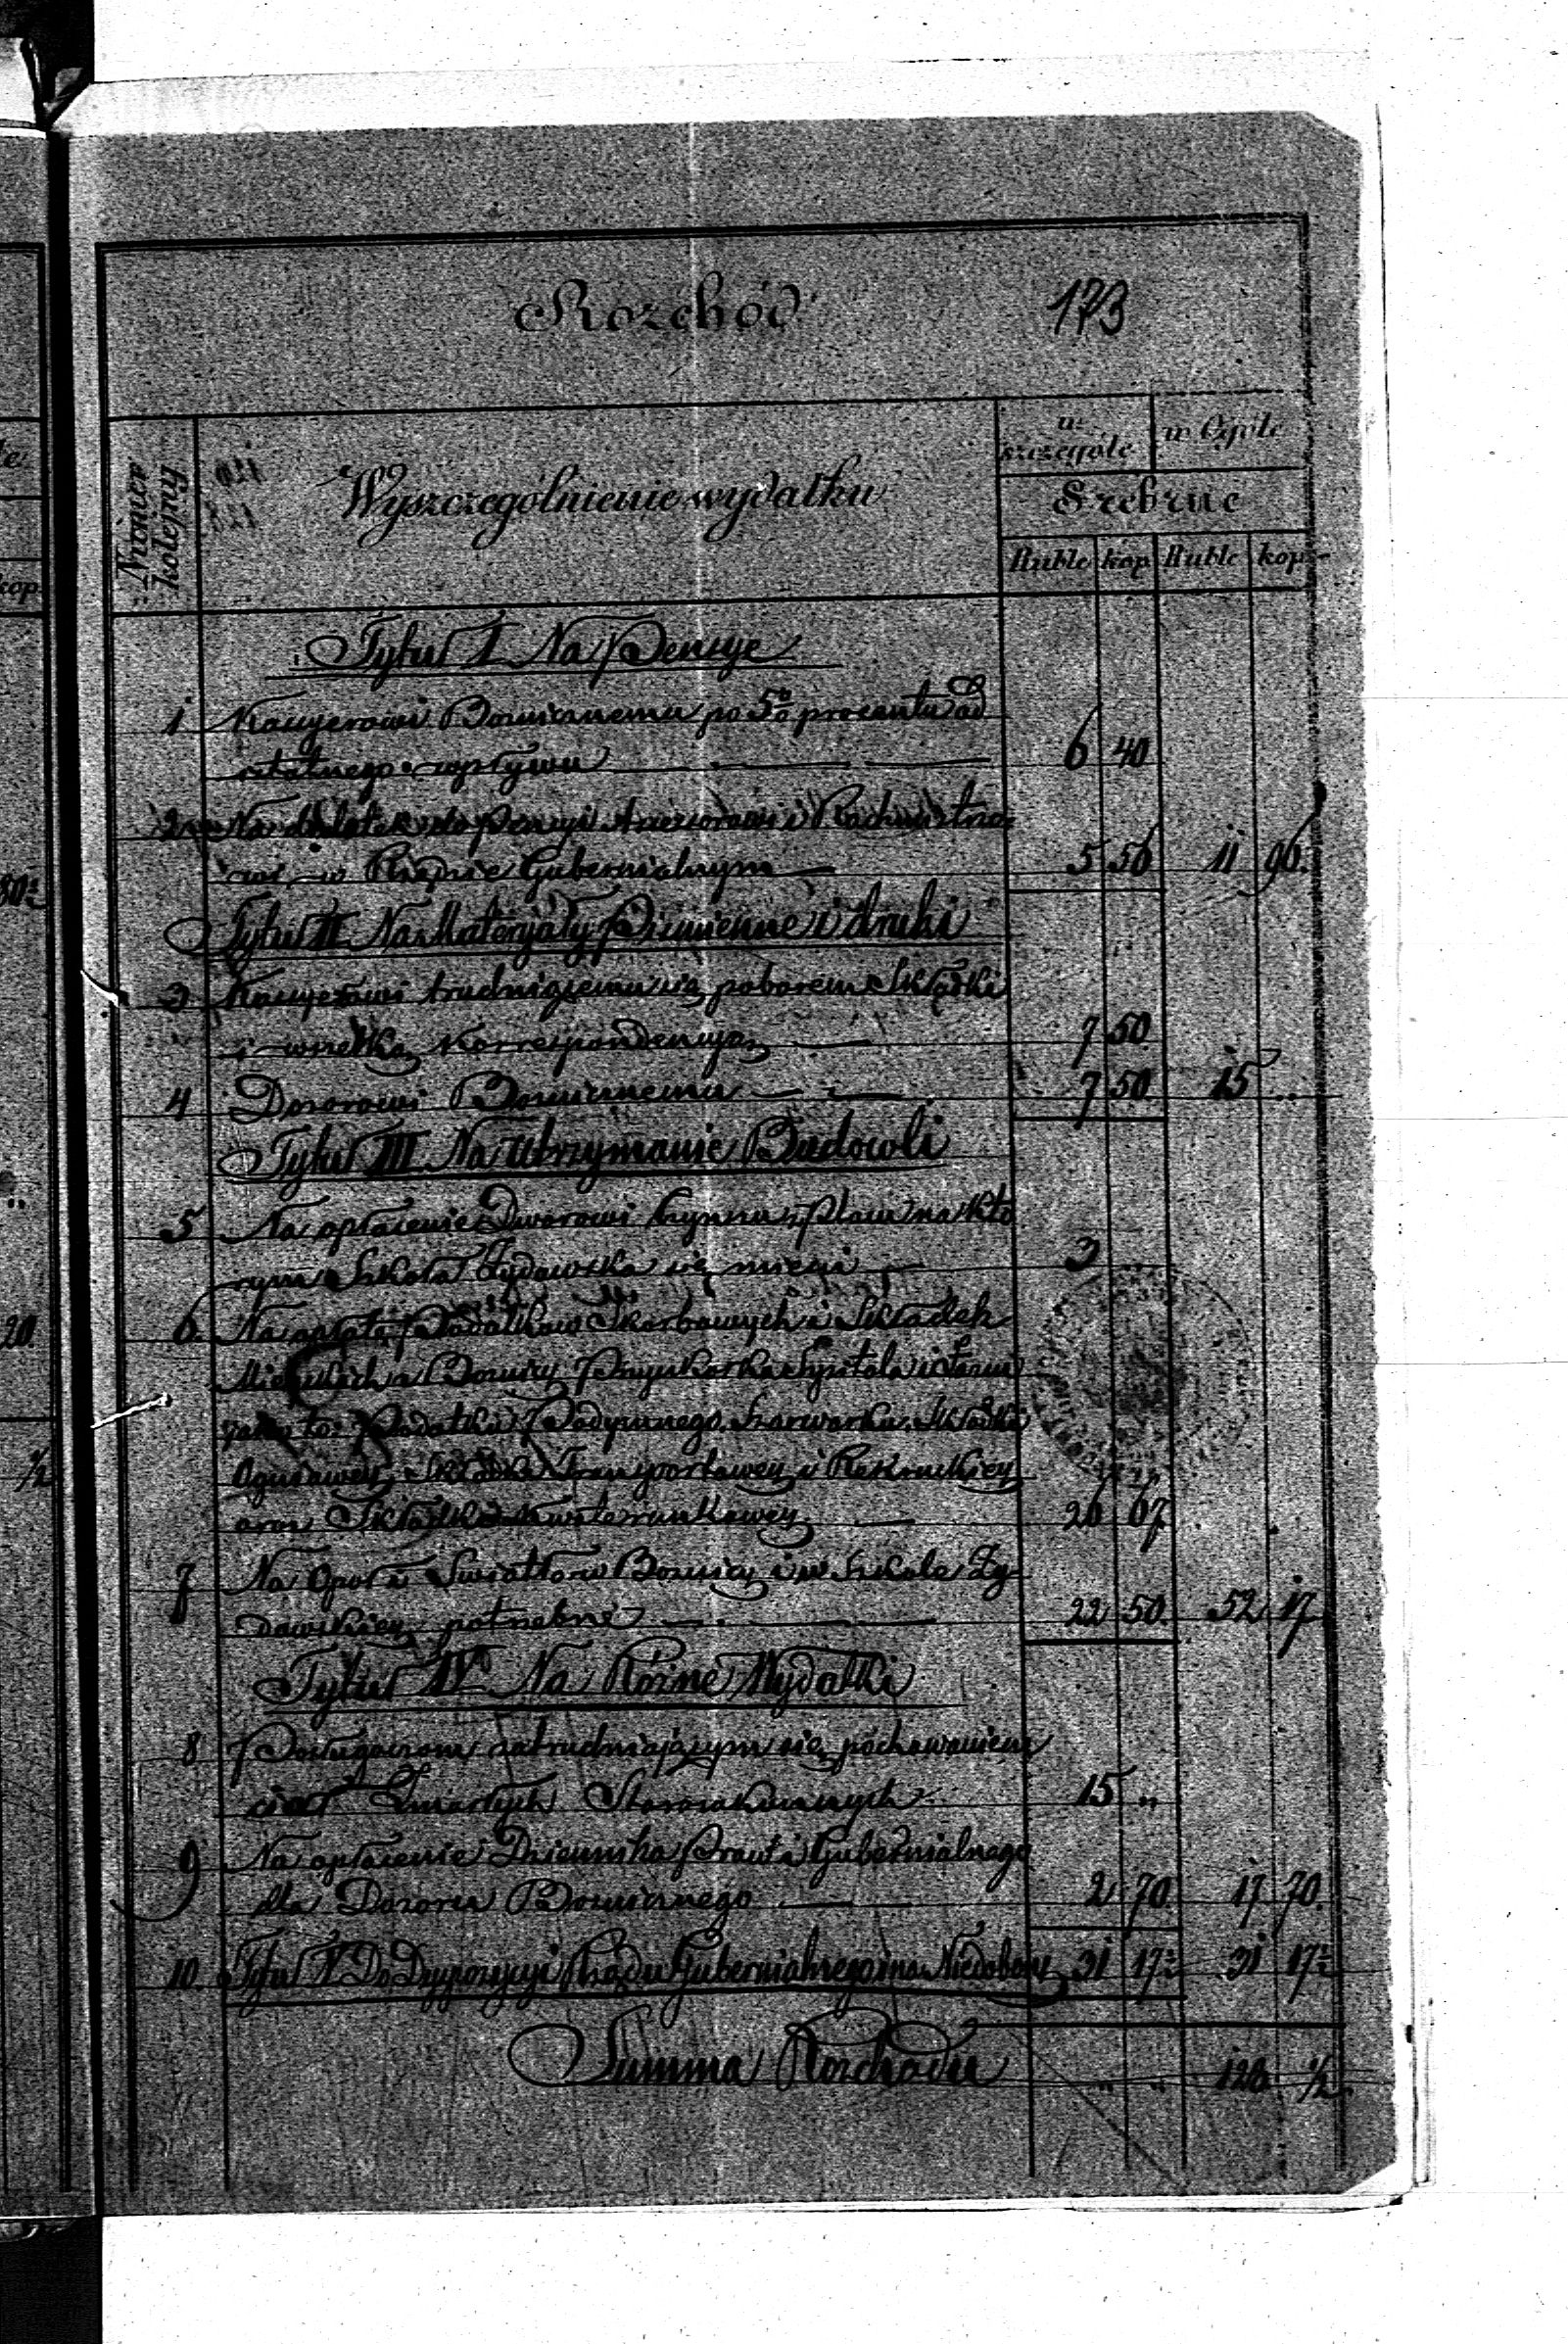 Rozchód
173
Numer kolejny
Wyszczególnienie wydatku
w szczególe
w Ogóle
Srebrne
Ruble kop Ruble kop
Tytuł I Na Pensye
1 Kassyerowi Bożnicznemu po 5% procentu od
wpływu 6 40
2 Na dodatek do Pensyi Assessorowi i Rachmistrzo-
wi w Rządzie Gubernialnym 5 56 11 96
Tytuł II Na Materyały Piśmienne i druki
3 Kassyerowi trudniącemu się poborem Składki
i wszelką Korrespondencyą 7 50
4 Dozorowi Bożnicznemu 7 50 15 "
Tytuł III Na Utrzymanie Budowli
5 Na opłacenie Dworowi Czynszu z Placu na któ
rym Szkoła Żydowska się mieści 3 "
6 Na opłatę Podatków Skarbowych i Składek
Miejskich z Bożnicy Przykahałka Szpitala i Łazni
jako to: Podatku Podymnego Szarwarku Składki
Ogniowey Składki Transportowey i Rekruckiey
oraz Składki Kwaterunkowey 26 67
7 Na Opał i Swiatło w Bożnicy i w Szkole Ży-
dowskiey potrzebne 22 50 52 17
Tytuł IV Na Rózne Wydatki
8 Posługaczom zatrudniającym się pochowaniem
ciał Zmarłych Starozakonnych 15 "
9 Na opłacenie Dziennika Praw i Gubernialnego
dla Dozoru Bożnicznego 2 70 17 70
10 Tytuł V Do Dyspozycyi Rządu Gubernialnego i na Niedobory 31 17½ 31 17½
Summa Rozchodu " " 128 ½